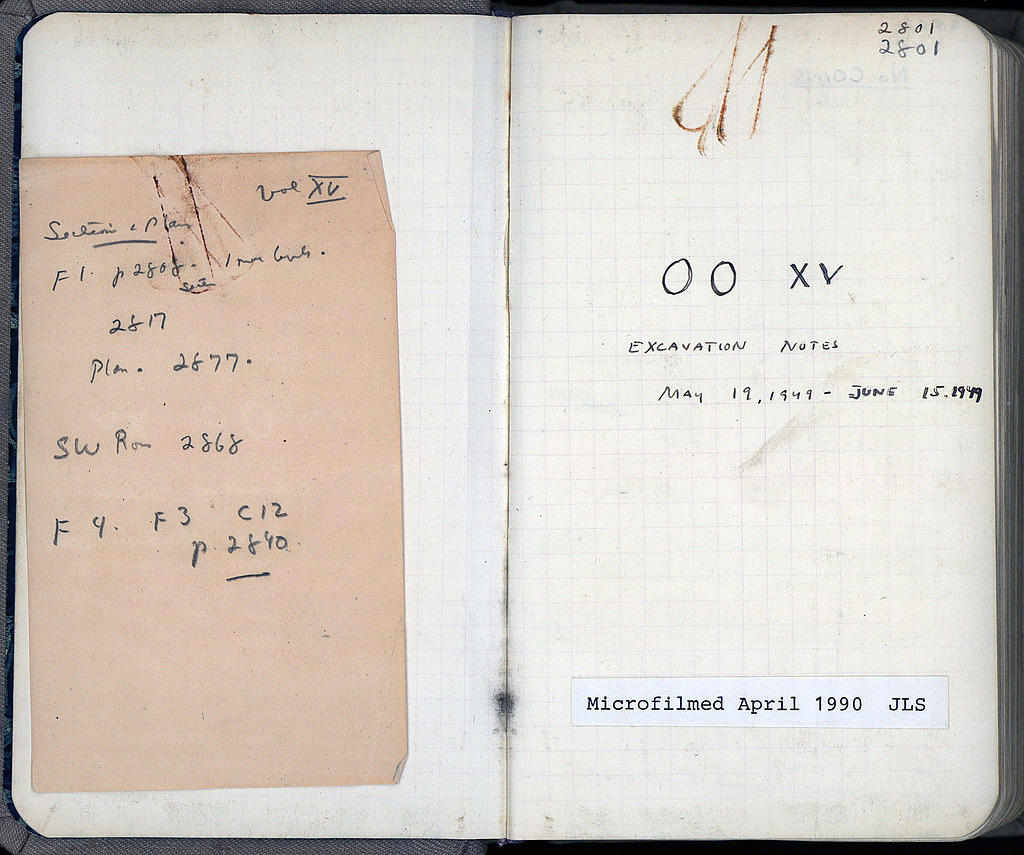 vol XV
Section & Plan
F 1. p 2808. Inner levels.
Section
2817
Plan. 2877.
SW Room 2868
F 4. F 3 C12
p. 2840.
2801
2801
No Coins
OO XV
EXCAVATION NOTES
MAY 19, 1949 - JUNE 15. 1949
Microfilmed April 1990 JLS